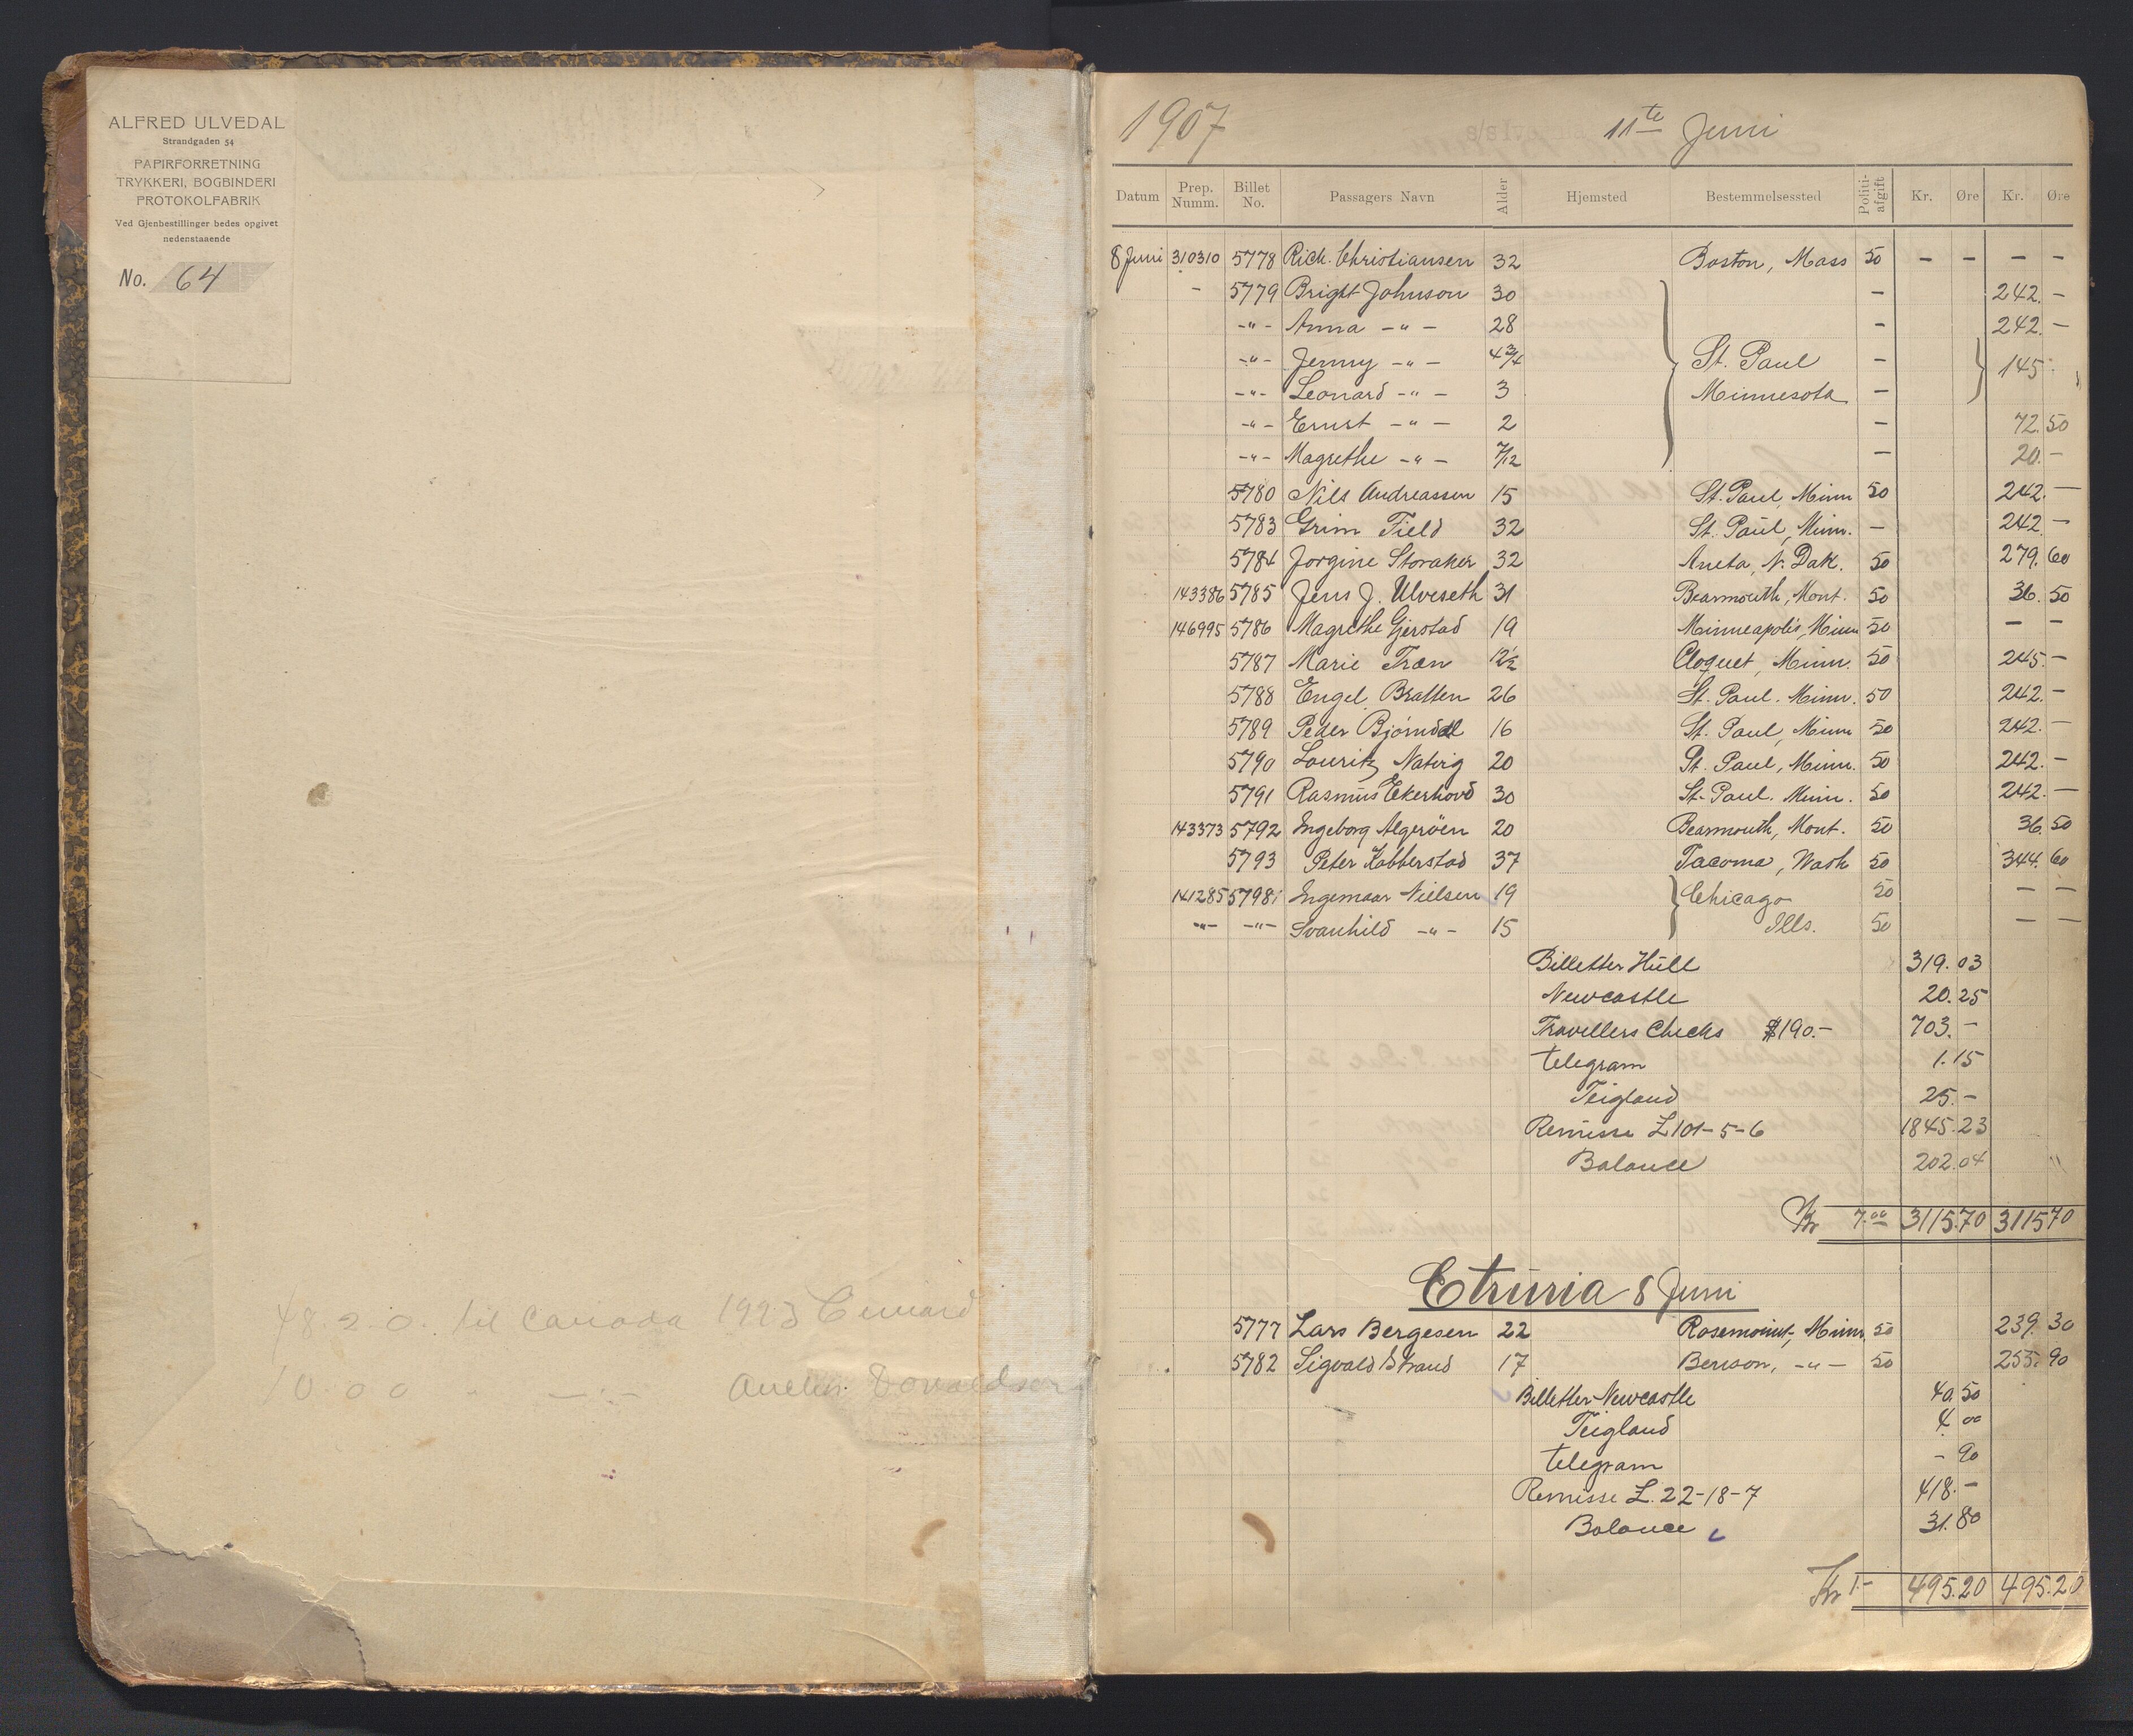 ALFRED ULVEDAL
Strandgaden 54
PAPIRFORRETNING
TRYKKERI, BOGBINDERI
PROTOKOLFABRIK
Ved Gjenbestillinger bedes opgivet
nedenstaaende
No. 64
48.2.0. til Canada 1923 Cunard
10.0.0 " — " — Donaldson
1907 11te Juni
Datum Prep. Numm. Billet No. Passagers Navn Alder Hjemsted Bestemmelsessted Politi-afgift Kr. Øre Kr. Øre
8 Juni 310310 5778 Rich. Christiansen 32 Boston, Mass 50 — — — —
- 5779 Bright Johnson 30 — 242. —
-"- Anna -"- 28 — 242. —
-"- Jenny -"- 4 3/4 St. Paul — 145
-"- Leonard -"- 3 Minnesota —
-"- Ernst -"- 2 — 72.50
-"- Magrethe -"- 7/12 — 20. —
5780 Nils Andreassen 15 St. Paul, Minn 50 242. —
5783 Grim Field 32 St. Paul, Minn. — 242 —
5784 Jorgine Storaker 32 Aneta, N. Dak. 50 279.60
143386 5785 Jens J. Ulveseth 31 Bearmouth, Mont. 50 36.50
146995 5786 Magrethe Gjerstad 19 Minneapolis, Minn 50 — —
5787 Marie Træn 12 1/2 Cloquet, Minn. 50 245. —
5788 Engel Bratten 26 St. Paul. Minn. 50 242. —
5789 Peder Bjørndal 16 St. Paul, Minn 50 242. —
5790 Louritz Natvig 20 St. Paul, Minn. 50 242. —
5791 Rasmus Ekerhovd 30 St. Paul. Minn. 50 242. —
143373 5792 Ingeborg Algerøen 20 Bearmouth, Mont. 50 36.50
5793 Peter Kobberstad 37 Tacoma, Wash 50 344.60
141285 5798 Ingemaar Nielsen 19 Chicago 50 — —
-"- -"- Svanhild -"- 15 Ills. 50 — —
Billetter Hull 319.03
Newcastle 20.25
Travellers Checks $190.- 703. —
telegram 1.15
Teigland 25. —
Remisse £101-5-6 1845.23
Balance 202.04
Kr 7.00 3115.70 3115 70
Etruria 8 Juni
5777 Lars Bergesen 22 Rosemount, Minn. 50 239.30
5782 Sigvald Strand 17 Benson, -"- 50 255.90
Billetter Newcastle 40.50
Teigland 4.00
telegram - 90
Remisse £.22-18-7 418. —
Balance 31.80
Kr 1.- 495.20 495.20